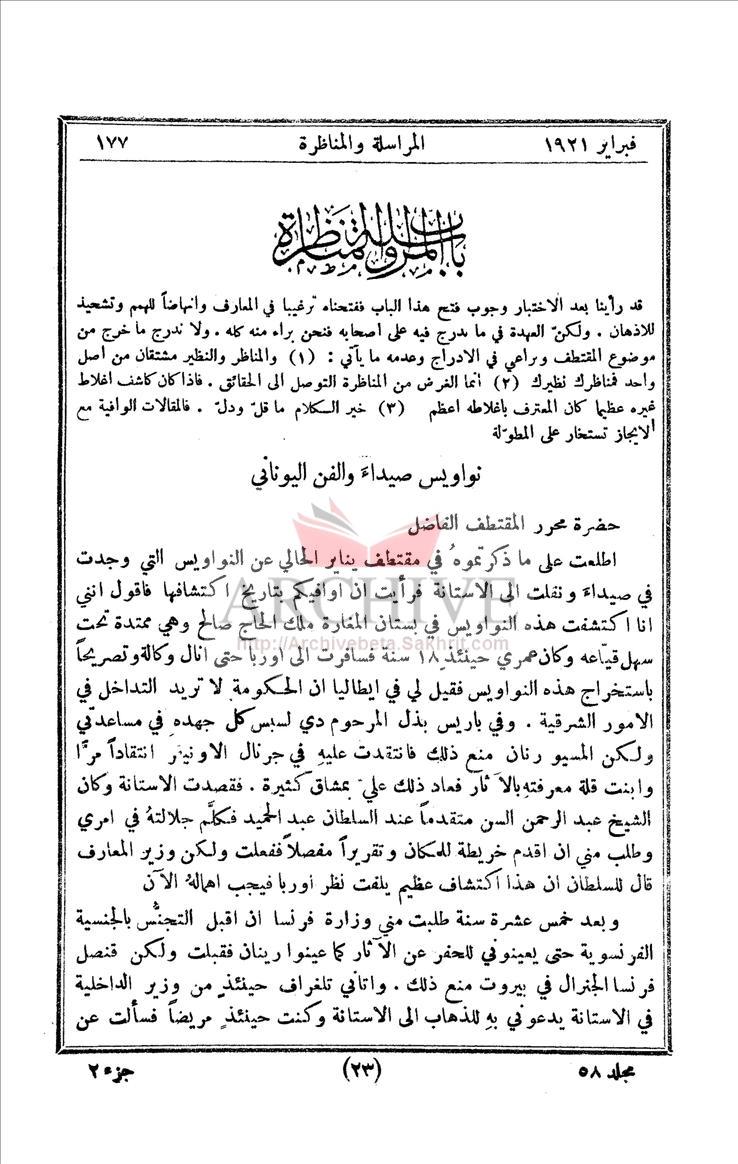 فبراير ١٩٢١ المراسلة والمناظرة ١٧٧
باب المراسلة والمناظرة
قد رأينا بعد الاختبار وجوب فتح هذا الباب ففتحناه ترغيبا في المعارف وانهاضاً للهمم وتشحيذ
للاذهان . ولكنّ العهدة في ما يدرج فيه على اصحابه فنحن براء منه كله . ولا ندرج ما خرج من
موضوع المقتطف ونراعي في الادراج وعدمه ما يأتي : (١) والمناظر والنظير مشتقان من أصل
واحد فمناظرك نظيرك (٢) انما الغرض من المناظرة التوصل الى الحقائق . فاذا كان كاشف اغلاط
غيره عظيما كان المعترف باغلاطه اعظم (٣) خير الكلام ما قلّ ودلّ . فالمقالات الوافية مع
الايجاز تستخار على المطوّلة
نواويس صيداءَ والفن اليوناني
حضرة محرر المقتطف الفاضل
اطلعت على ما ذكرتموهُ في مقتطف يناير الحالي عن النواويس التي وجدت
في صيداءَ ونقلت الى الاستانة فرأيت ان اوافيكم بتاريخ اكتشافها فاقول انني
ARCHIVE
انا اكتشفت هذه النواويس في بستان المغارة ملك الحاج صالح وهي ممتدة تحت
http://Archivebeta.Sakhrit.com
سهل قياعه وكان عمري حينئذٍ ١٨ سنة فسافرت الى اوربا حتى انال وكالة وتصريحاً
باستخراج هذه النواويس فقيل لي في ايطاليا ان الحكومة لا تريد التداخل في
الامور الشرقية . وفي باريس بذل المرحوم دي لسبس كل جهده في مساعدتي
ولكن المسيو رنان منع ذلك فانتقدت عليهِ في جرنال الاونيفر انتقاداً مرًّا
وابنت قلة معرفتهِ بالآثار فعاد ذلك عليّ بمشاق كثيرة . فقصدت الاستانة وكان
الشيخ عبد الرحمن السن متقدماً عند السلطان عبد الحميد فكلَّم جلالتهُ في امري
وطلب مني ان اقدم خريطة للمكان وتقريراً مفصلاً ففعلت ولكن وزير المعارف
قال للسلطان ان هذا اكتشاف عظيم يلفت نظر اوربا فيجب اهمالهُ الآن
وبعد خمس عشرة سنة طلبت مني وزارة فرنسا ان اقبل التجنُّس بالجنسية
الفرنسوية حتى يعينوني للحفر عن الآثار كما عينوا رينان فقبلت ولكن قنصل
فرنسا الجنرال في بيروت منع ذلك . واتاني تلغراف حينئذٍ من وزير الداخلية
في الاستانة يدعوني بهِ للذهاب الى الاستانة وكنت حينئذٍ مريضاً فسألت عن
مجلد ٥٨ (٢٣) جزء ٢